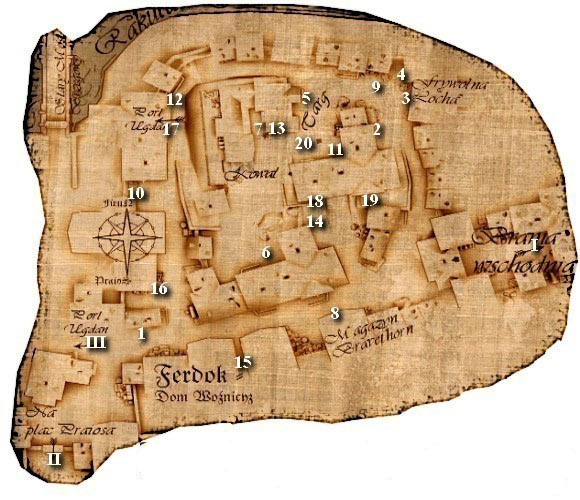 Rakul
Stary Most
12
Port
Ugdan
17
5
Targ
9
4
Frywolna
Locha
3
7
13
20
11
2
Kowal
10
18
19
14
6
Praios
16
Port
Ugdan
III
1
8
Magazyn
Brarethorn
15
Ferdok
Dom Woźnicy
Brama
wschodnia
I
Na
plac Praiosa
II